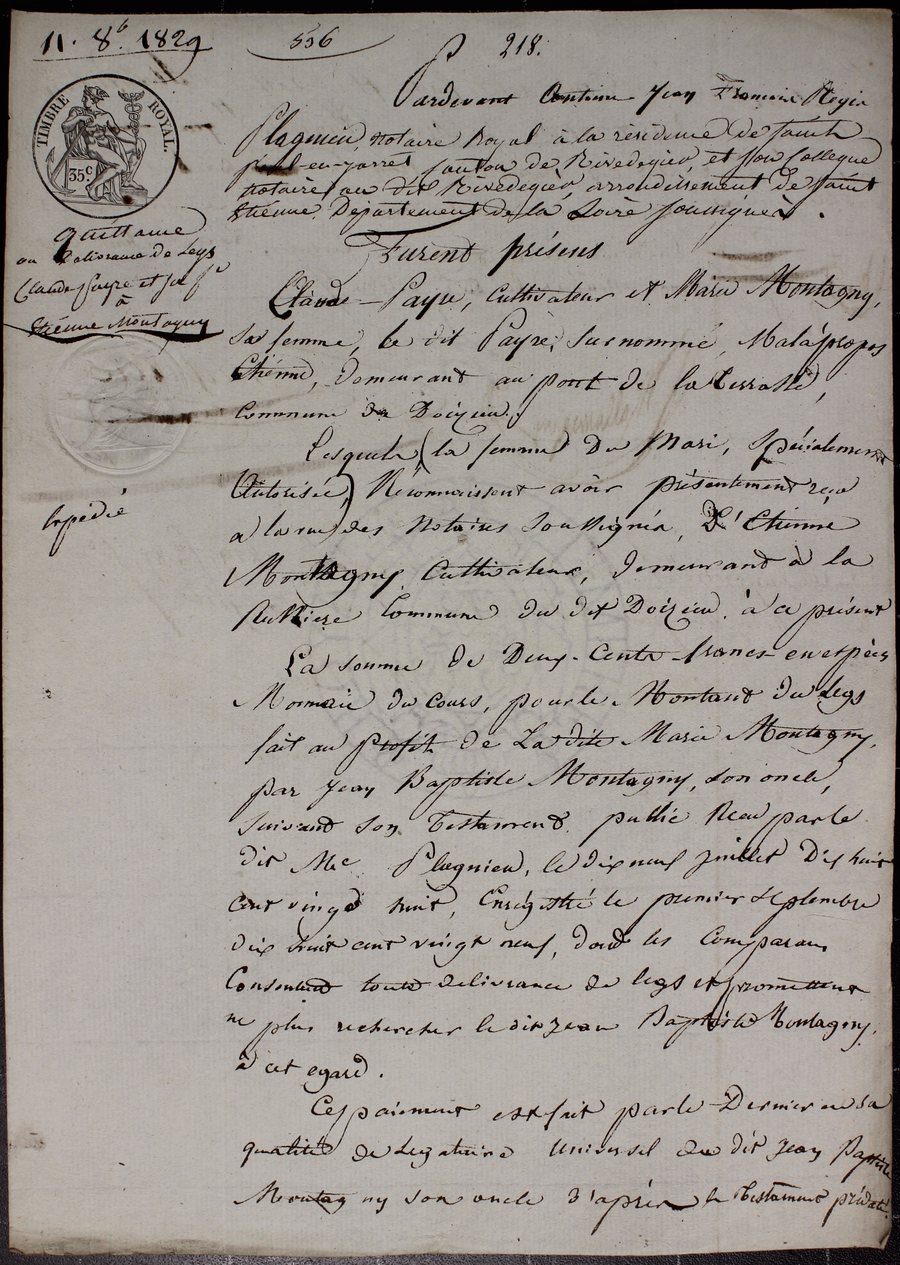 11. 8b. 1829
556
P 218.
TIMBRE ROYAL.
35c
Pardevant Antoine Jean François Régis
Plagnieu, Notaire Royal à la résidence de saint
paul-en-jarret canton de Rivedegier, et son Collegue
notaire au dit Rivedegier, arrondissement de saint
Etienne, Département de la Loire soussignés.
quittance
ou Délivrance de Legs
Claude payre et sa fe
à
Etienne Montagny
Furent présens
Claude Payre, Cultivateur et Marie Montagny,
sa femme, le dit Payre, surnommé, Malàpropos
Etienne, demeurant au pont de la terrasse,
Commune de Doizieu.
Lesquels (la femme du Mari, Spécialement
Autorisée) Reconnaissent avoir présentement reçu
a la vue des Notaires Soussignés, D'Etienne
Montagny, Cultivateur, demeurant à la
Commune du dit Doizieu, à ce présent
expédié
La somme de Deux-Cents francs en espèces
Monnaie du cours, pour le Montant du Legs
fait au profit de La dite Marie Montagny,
par Jean Baptiste Montagny, son oncle,
suivant son Testament public Reçu par le
dit Me Plagnieu, le dix neuf juillet Dix huit
cent vingt huit, Enregistré le premier septembre
dix huit cent vingt neuf, dont les Comparans
Consentent toute délivrance de legs et promettent
ne plus rechercher le dit Jean Baptiste Montagny,
à cet egard.
Ce paiement est fait par le Dernier en sa
qualité de Legataire Universel du dit Jean Baptiste
Montagny son oncle d'après le Testament prédaté.